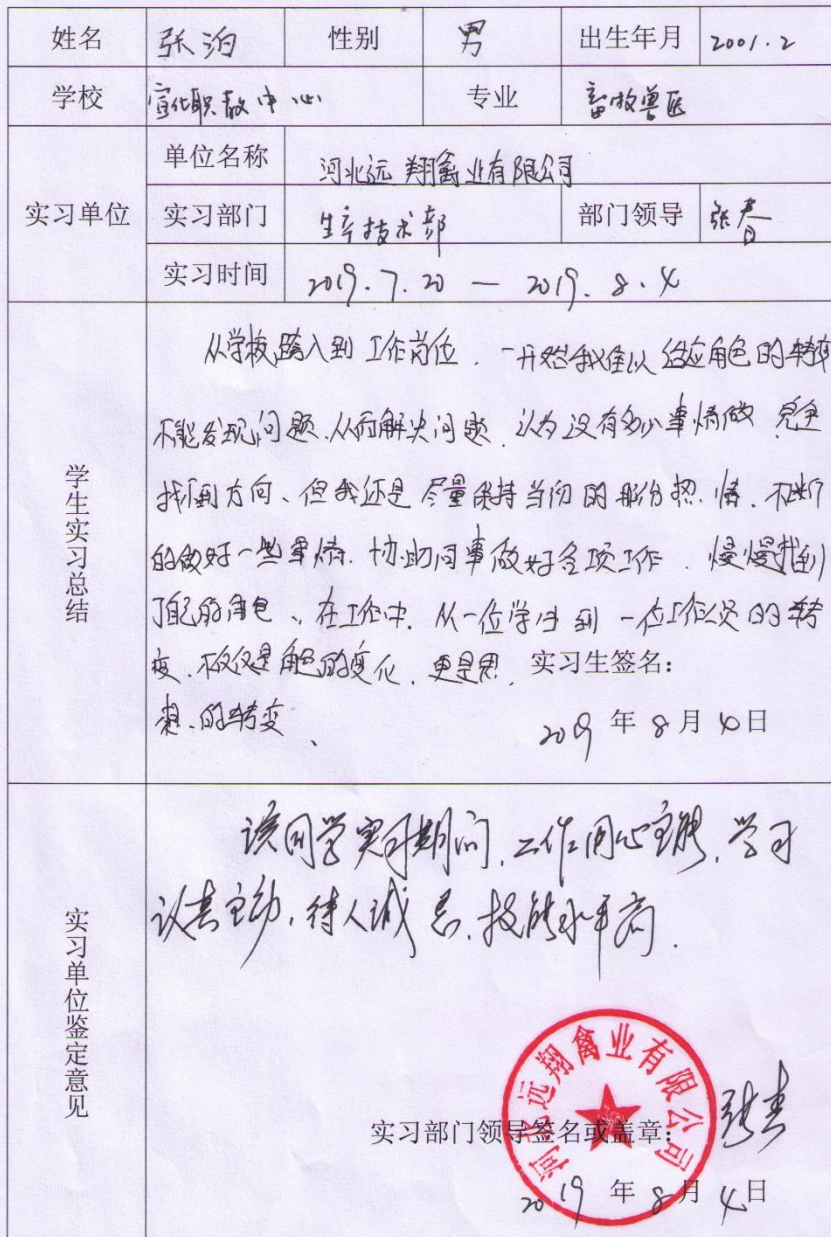 姓名 张泊 性别 男 出生年月 2001.2
学校 宣化职教中心 专业 畜牧兽医
实习单位 单位名称 河北远翔禽业有限公司
实习部门 生产技术部 部门领导 张春
实习时间 2019.7.20 — 2019.8.4
学生实习总结
从学校踏入到工作岗位、一开始我难以适应角色的转变
不能发现问题、从而解决问题、认为没有多少事情做、竟
找不到方向、但我还是尽量保持当初的那份热情、不断
的做好一些事情、协助同事做好各项工作、慢慢找到
了自己的角色、在工作中、从一位学生到一位工作人员的转
变、不仅仅是角色的变化、更是思
实习生签名:
想、的转变、
2019年8月4日
实习单位鉴定意见
该同学实习期间、工作用心、学习
认真主动、待人诚恳、技能水平高.
河北远翔禽业有限公司
实习部门领导签名或盖章: 张春
2019年8月4日